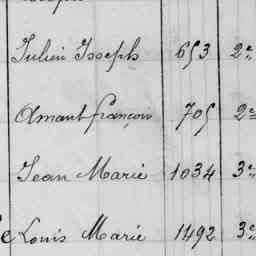 Julien Joseph 653 2e
Amant françois 705 2e
Jean Marie 1034 3e
Louis Marie 1492 3e